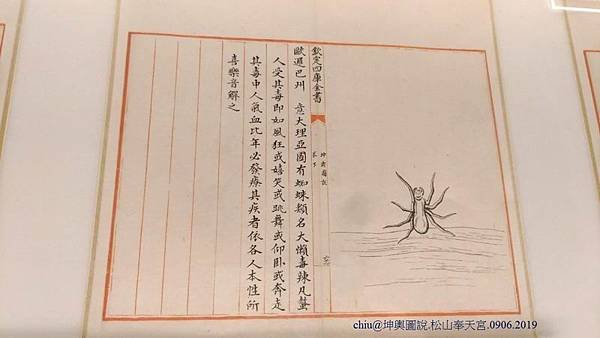 欽定四庫全書
坤輿圖說
卷下
歐邏巴州　意大理亞國有蜘蛛類名大懶毒辣凡螫
人受其毒即如風狂或嬉笑或跳舞或仰臥或奔走
其毒中人氣血比年必發療其疾者依各人本性所
喜樂音解之
chiu@坤輿圖說.松山奉天宮.0906.2019